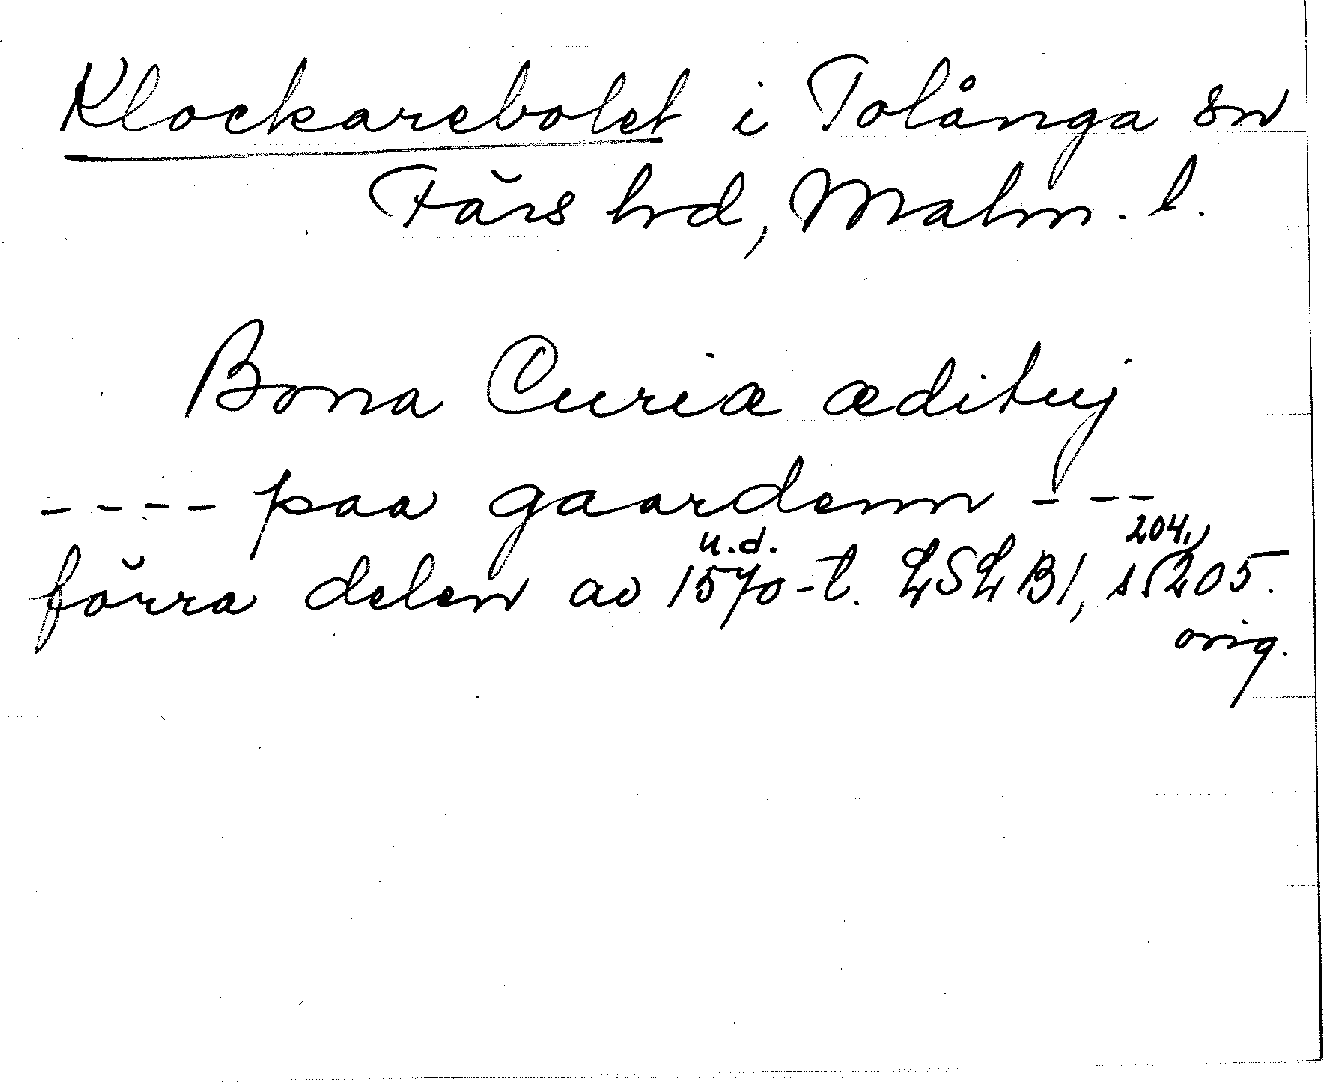 Klockarebolet i Tolånga sn
Färs hrd, Malm. l.
Bona Curiæ ædituj
---- paa gaardenn ---
u.d. 204,
förra delen av 1570-t. LSLB1, s 205.
orig.